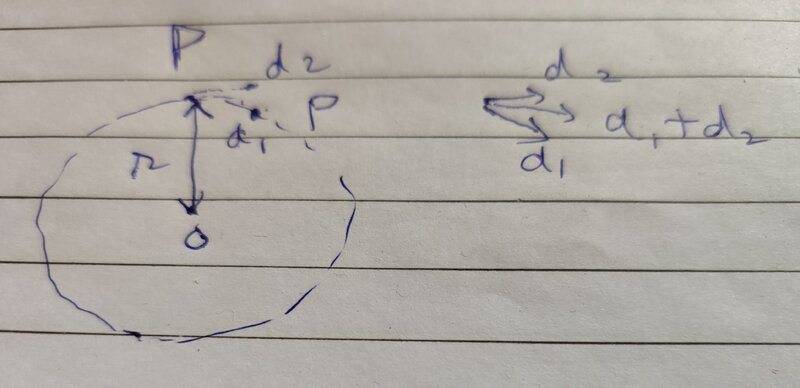 P
d2
P
d1
r
o
d2
d1+d2
d1